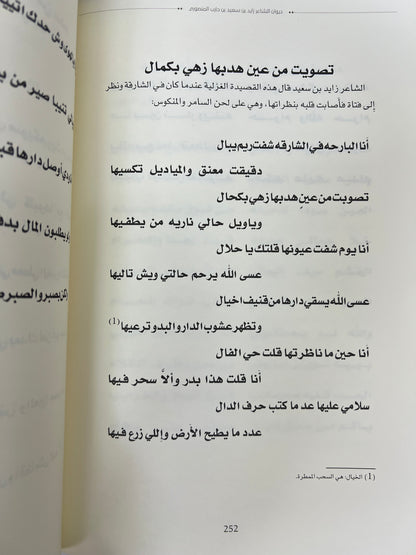 ديوان الشاعر زايد بن سعيد بن حارب المنصوري
تصويت من عين هدبها زهي بكمال
الشاعر زايد بن سعيد قال هذه القصيدة الغزلية عندما كان في الشارقة ونظر
إلى فتاة فأصابت قلبه بنظراتها، وهي على لحن السامر والمنكوس:
أنا البارحه في الشارقه شفت ريم يبال
دقيقت معنق والمياديل تكسيها
تصوبت من عينٍ هدبها زهي بكحال
وياويل حالي ناريه من يطفيها
أنا يوم شفت عيونها قلتك يا حلال
عسى الله يرحم حالتي ويش تاليها
عسى الله يسقي دارها من قنيف اخيال
وتظهر عشوب الدار والبدو ترعيها (1)
أنا حين ما ناظرتها قلت حي الفال
أنا قلت هذا بدر وألاَّ سحر فيها
سلامي عليها عد ما كتب حرف الدال
عدد ما يطيح الأرض وإللي زرع فيها
(1) الخيال: هي السحب الممطرة.
252